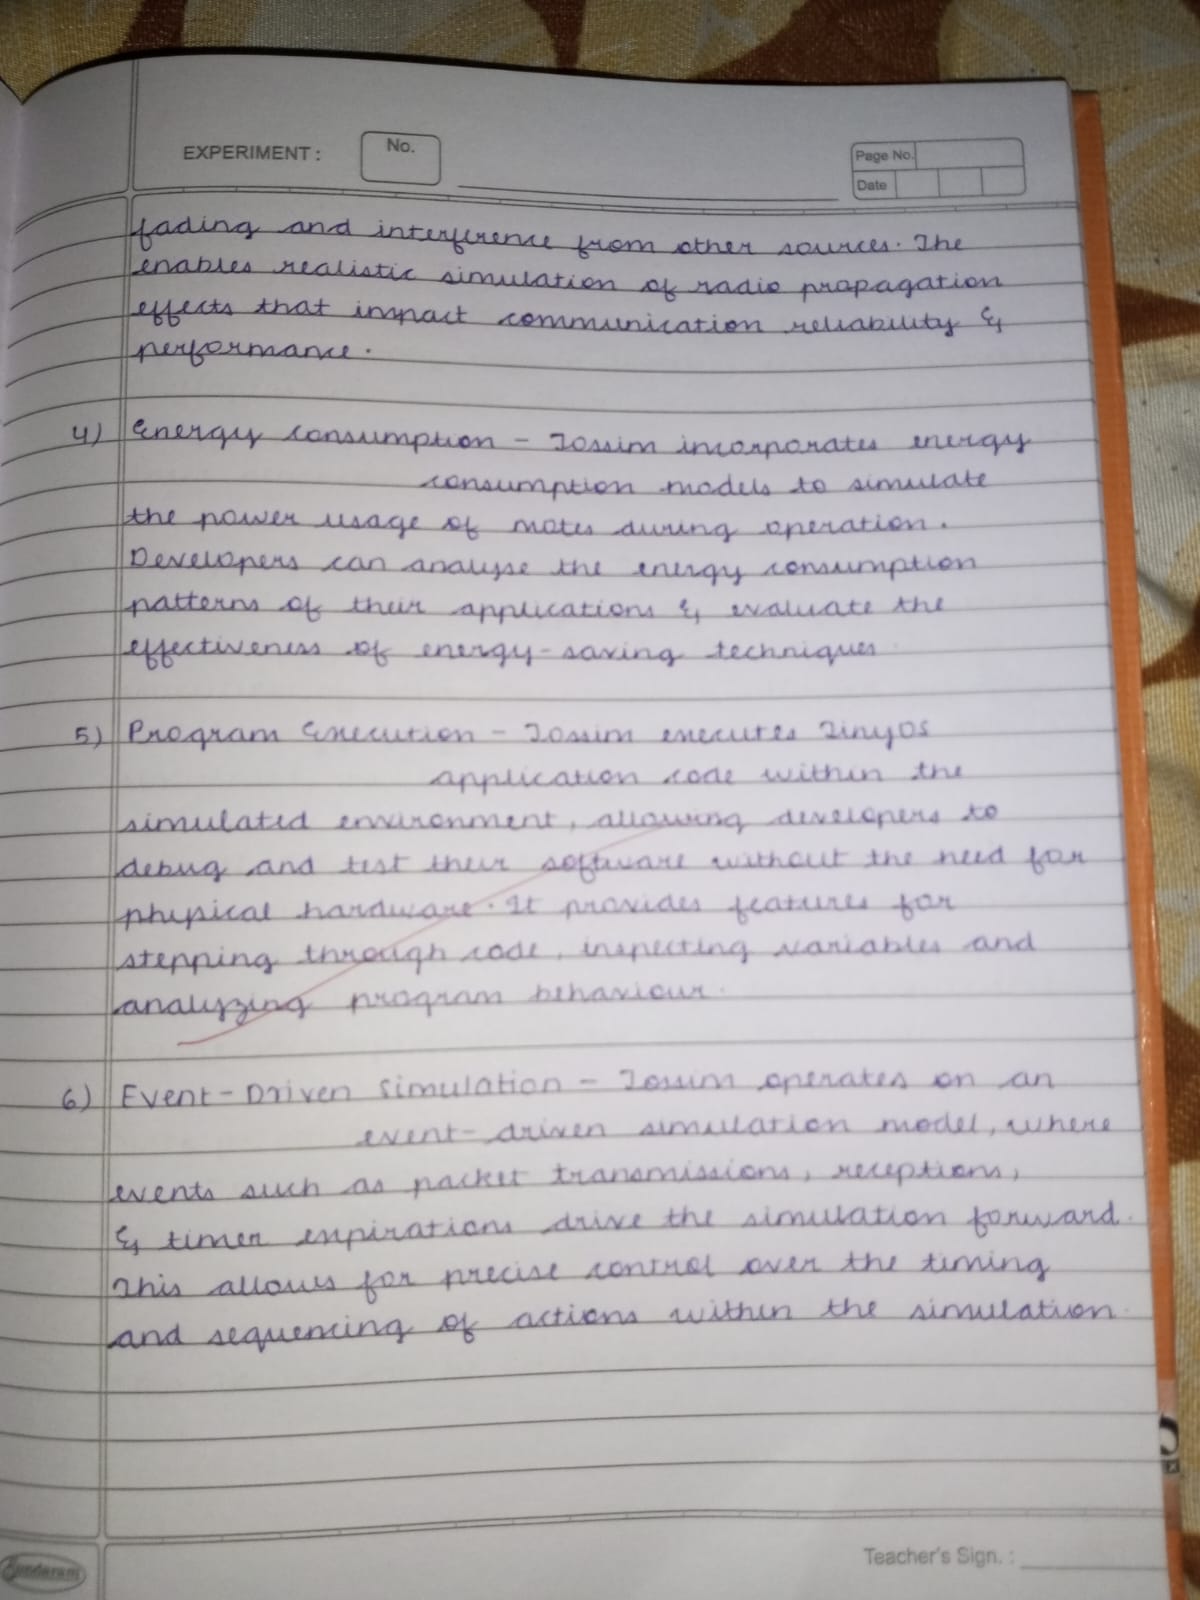 EXPERIMENT :
No.
Page No.
Date
fading and interference from other sources. The
enables realistic simulation of radio propagation
effects that impact communication reliability &
performance.
4) Energy consumption - Tossim incorporates energy
consumption models to simulate
the power usage of motes during operation.
Developers can analyse the energy consumption
patterns of their applications & evaluate the
effectiveness of energy-saving techniques
5) Program Execution - Tossim executes TinyOS
application code within the
simulated environment, allowing developers to
debug and test their software without the need for
physical hardware. It provides features for
stepping through code, inspecting variables and
analyzing program behaviour.
6) Event-Driven Simulation - Tossim operates on an
event-driven simulation model, where
events such as packet transmissions, receptions,
& timer expirations drive the simulation forward.
This allows for precise control over the timing
and sequencing of actions within the simulation.
Teacher's Sign. :
Sundaram